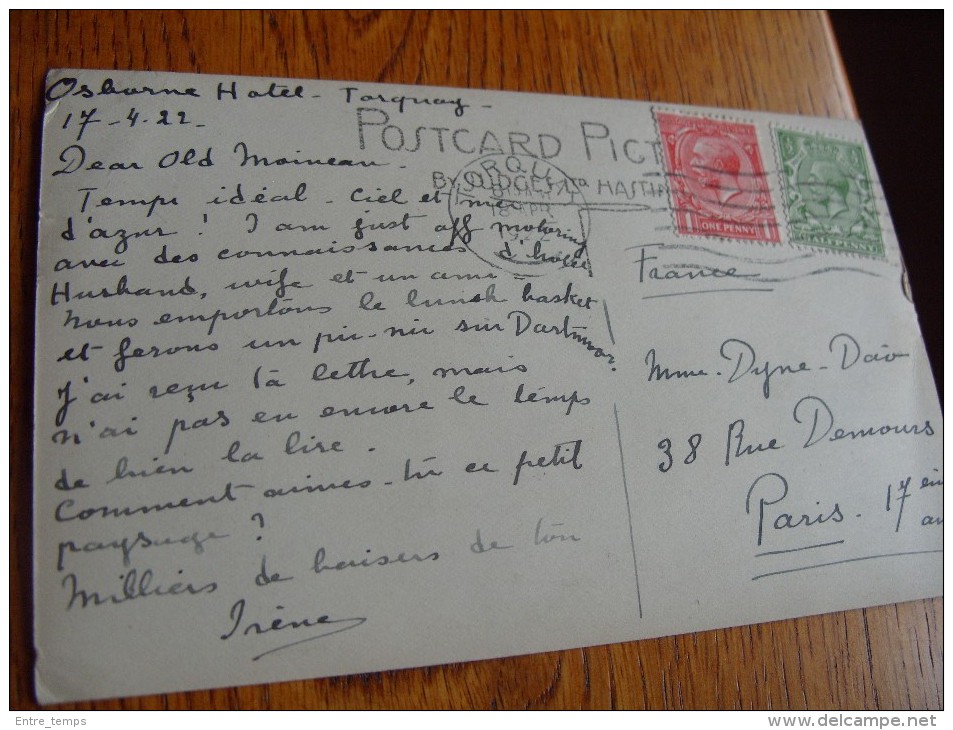 Osborne Hotel - Torquay -
17-4.22-
Dear Old Moineau -
Temps idéal - Ciel et mer
d'azur! I am just off motoring
avec des connaissances d'hotel
Husband, wife et un ami -
Nous emportons le lunch basket
et ferons un pic-nic sur Dartmoor.
J'ai reçu ta lettre, mais
n'ai pas eu encore le temps
de bien la lire.
Comment aimes-tu ce petit
paysage?
Milliers de baisers de ton
Irène
POSTCARD PICT
18 APR
HASTI
ONE PENNY
France
Mme. Dyne-Daïo
38 Rue Demours
Paris. 17 em
Entre_temps
http://www.delcampe.net